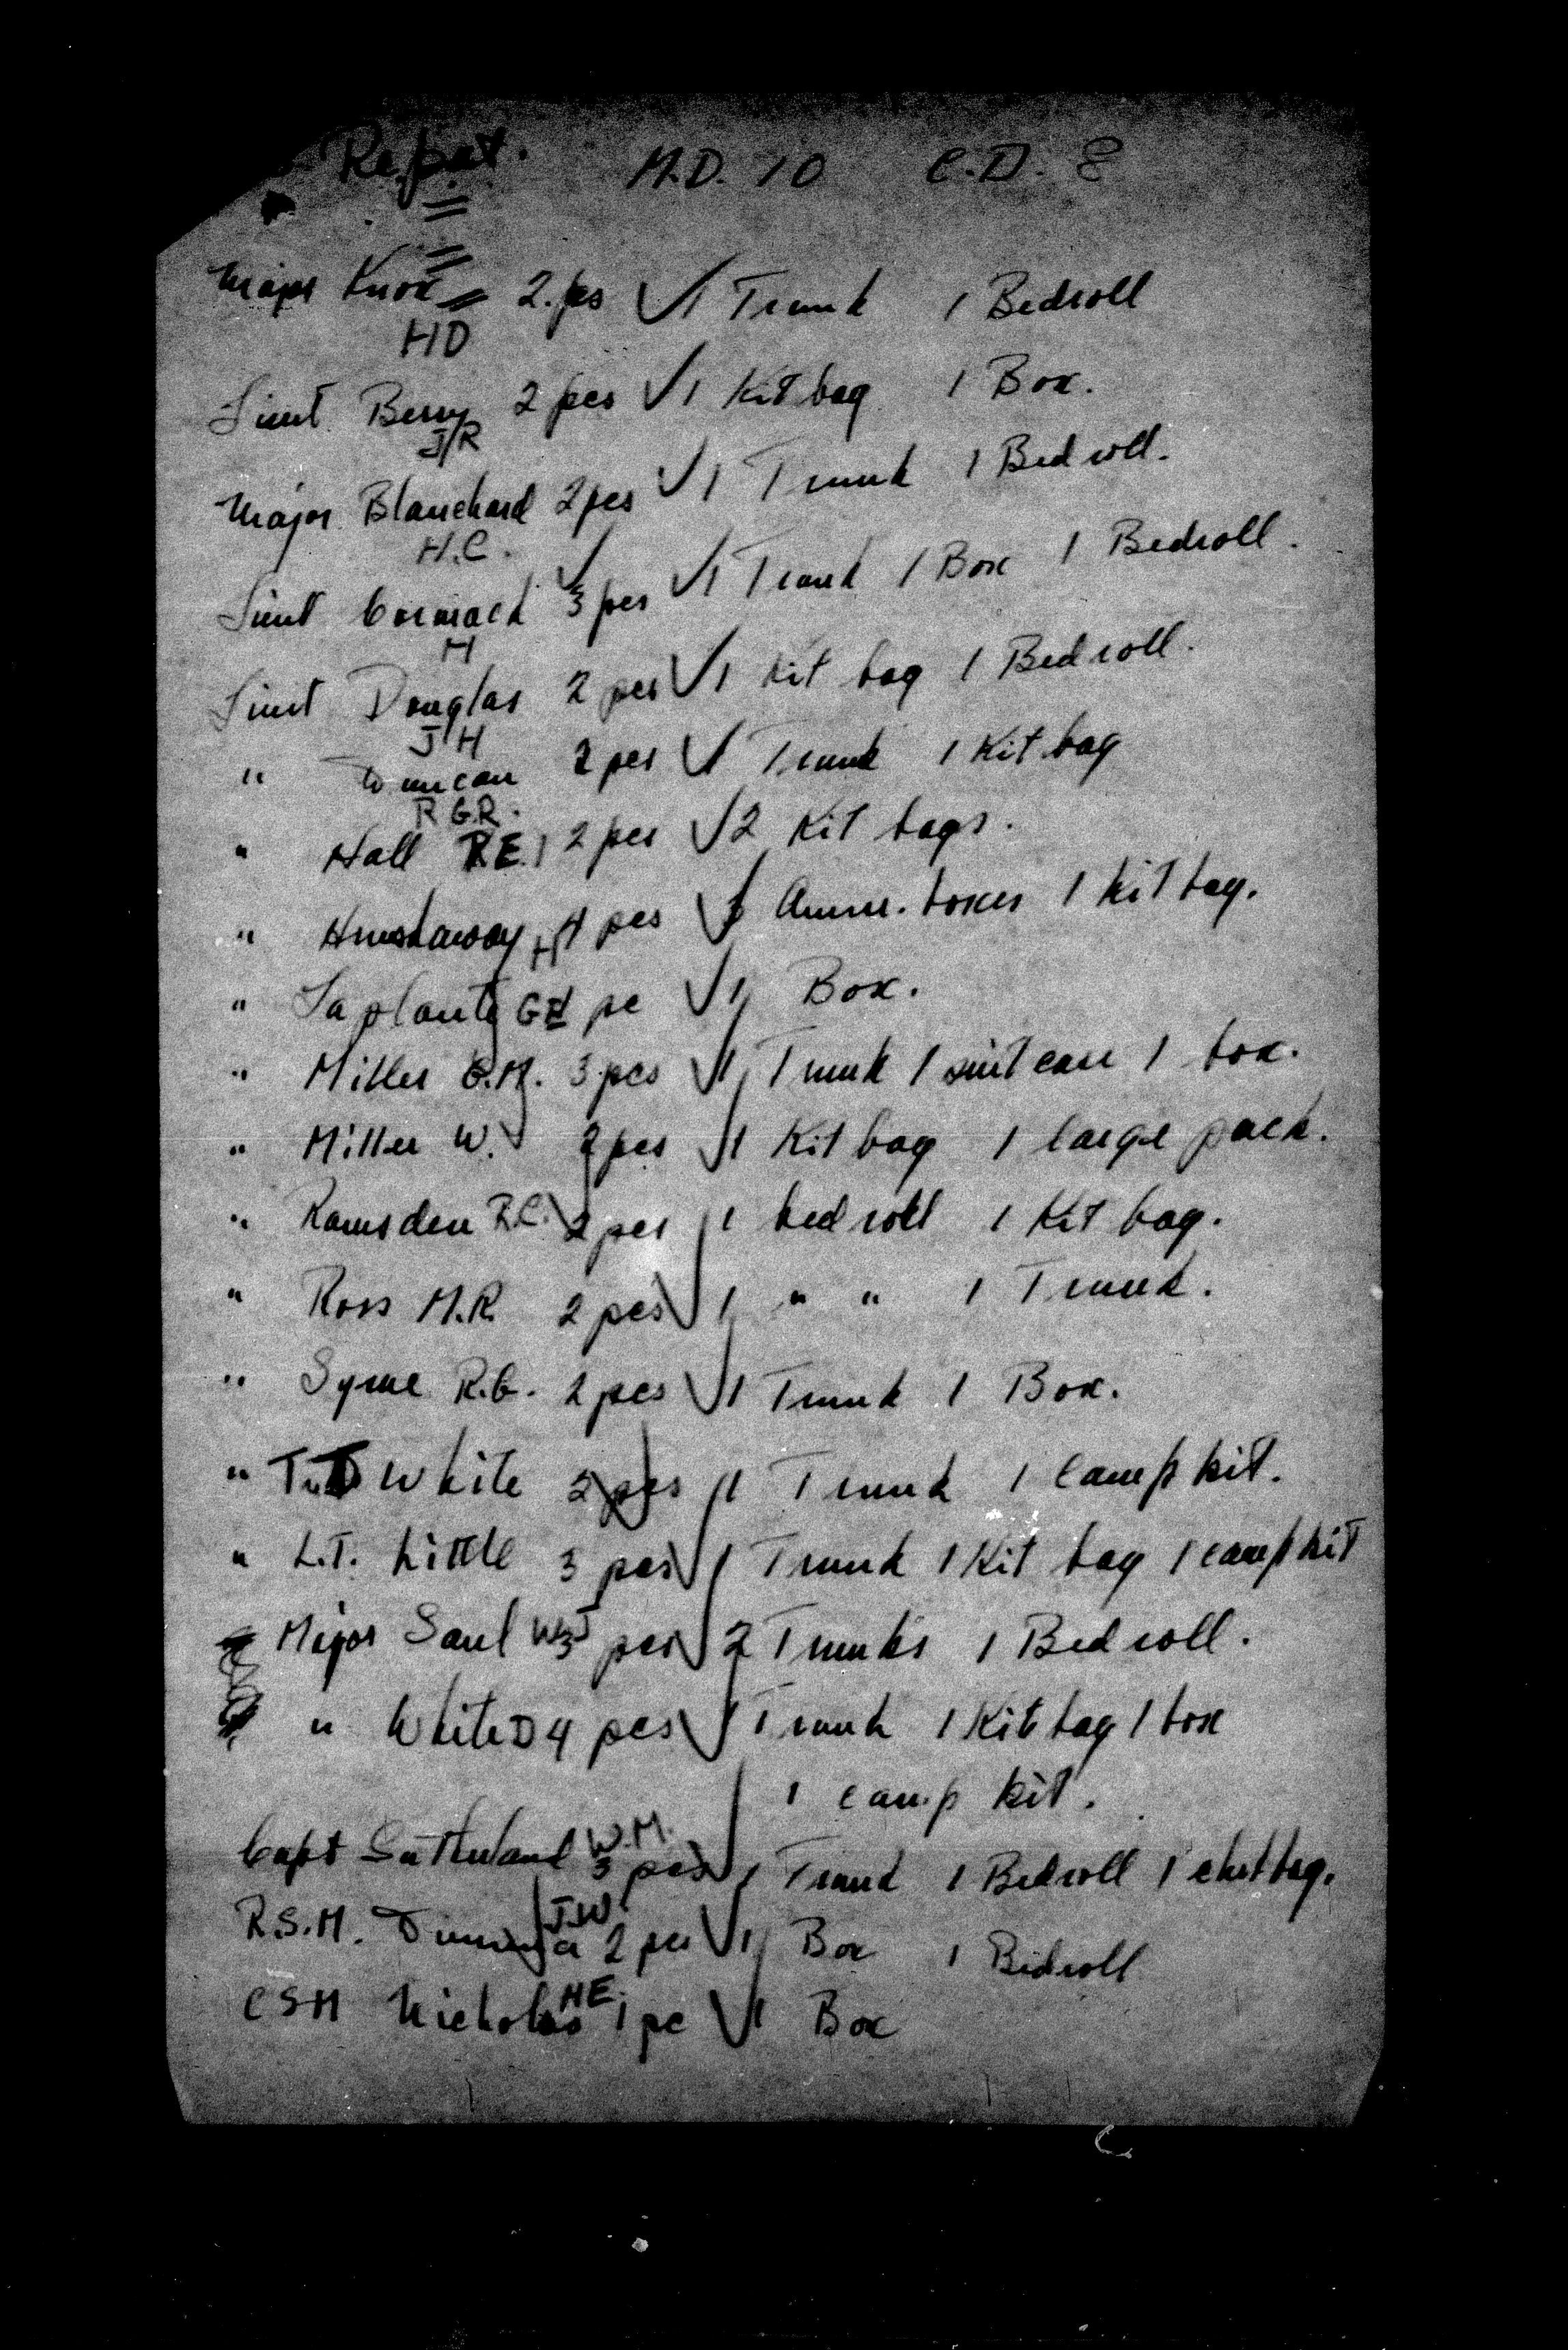 Repat. M.D. 10 C.D. 8
Major Knox 2 pcs ✓ 1 Trunk 1 Bedroll
HD
Lieut Berry 2 pcs ✓ 1 Kit bag 1 Box.
J/R
Major Blanchard 2 pcs ✓ 1 Trunk 1 Bedroll.
H.C.
Lieut Cormack 3 pcs ✓ 1 Trunk 1 Box 1 Bedroll.
H
Lieut Douglas 2 pcs ✓ 1 Kit bag 1 Bedroll.
JH
" Duncan 2 pcs ✓ 1 Trunk 1 Kit bag
R G.R.
" Hall R.E. 2 pcs ✓ 2 Kit bags.
" 4 pcs ✓ 3 Amm. boxes 1 Kit bag.
H
" Laplante GE 1 pc ✓ 1 Box.
" Miller E.M. 3 pcs ✓ 1 Trunk 1 suit case 1 box.
" Miller W. 2 pcs ✓ 1 Kit bag 1 large pack.
" Ramsden R.C. 2 pcs 1 bedroll 1 Kit bag.
" Ross M.R. 2 pcs ✓ 1 " " 1 Trunk.
" Syme R.G. 2 pcs ✓ 1 Trunk 1 Box.
" T.D White 2 pcs 1 Trunk 1 Camp kit.
" L.T. Little 3 pcs ✓ 1 Trunk 1 Kit bag 1 camp kit
Major Saul WJ 3 pcs ✓ 2 Trunks 1 Bedroll.
" White D 4 pcs ✓ 1 Trunk 1 Kit bag 1 box
1 camp kit.
Capt Sutherland W.M. 3 pcs ✓ 1 Trunk 1 Bedroll 1 bag.
R.S.M. J.W. 2 pcs ✓ 1 Box 1 Bedroll
CSM Nicholas HE. 1 pc ✓ 1 Box